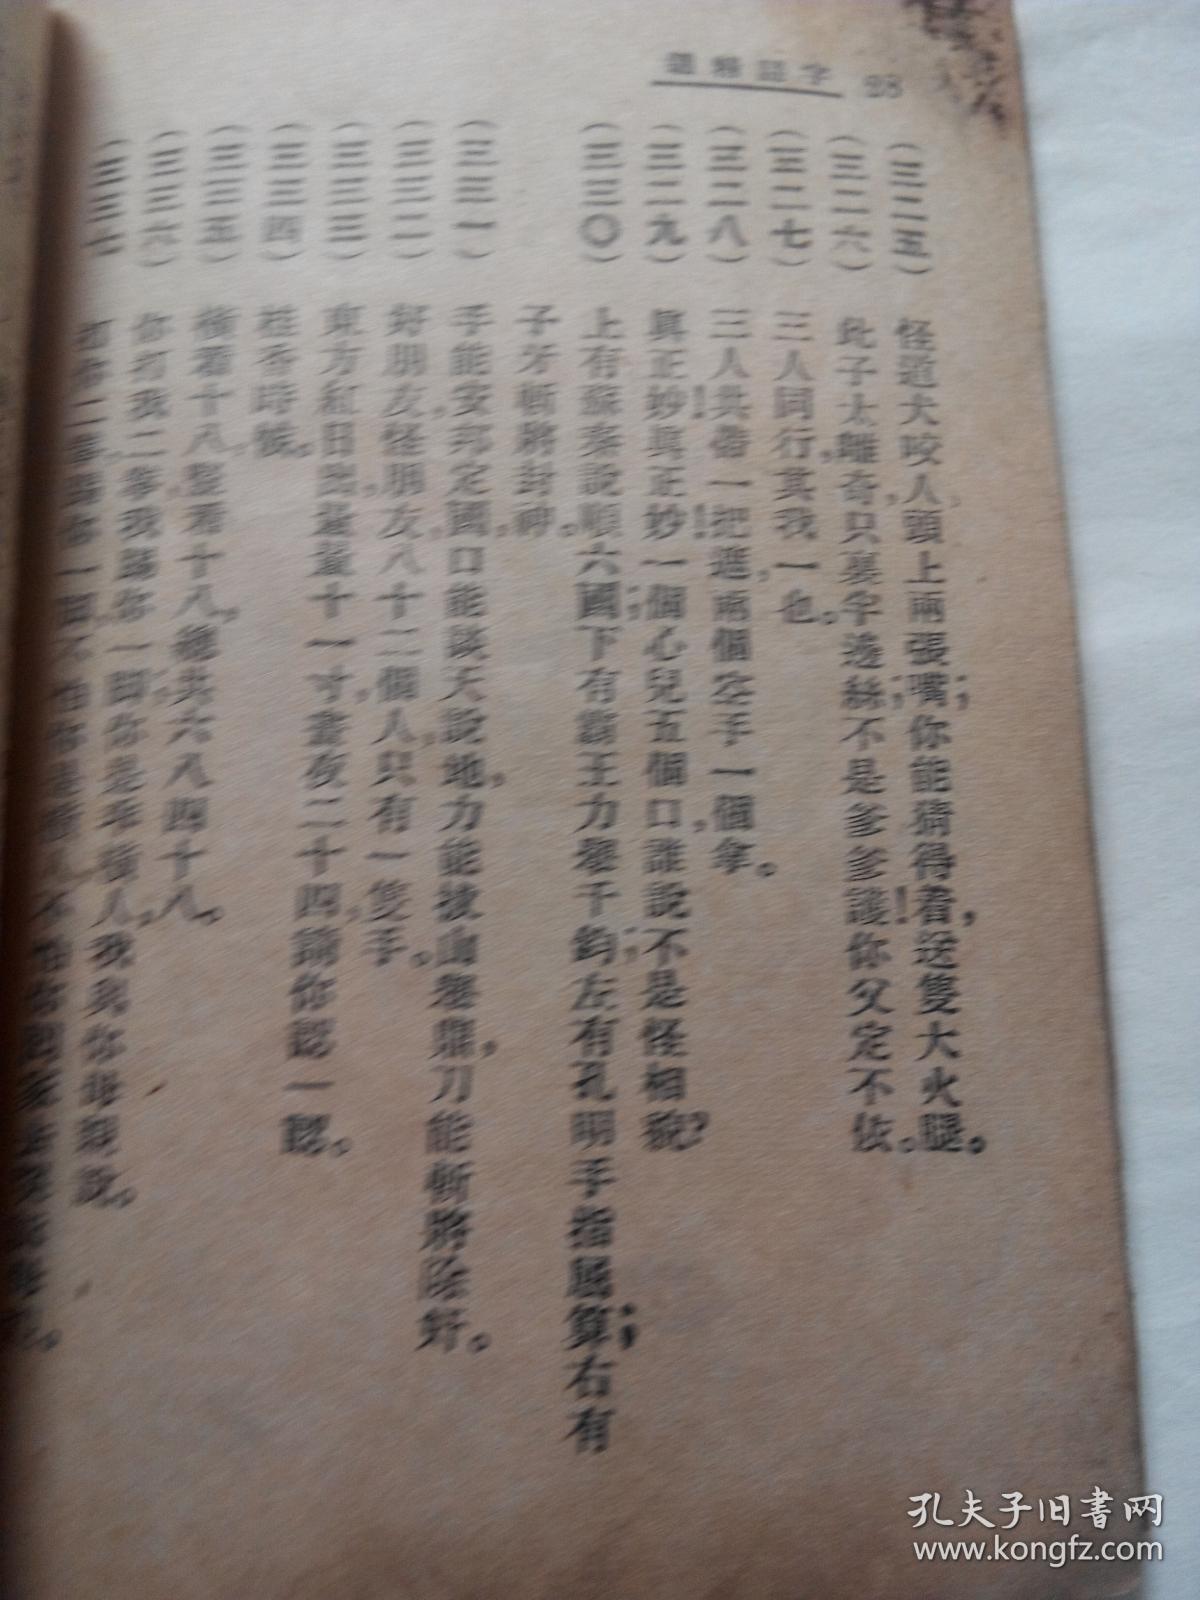 28 字謎
(三二五) 怪道犬咬人，頭上兩張嘴；你能猜得着，送隻大火腿。
(三二六) 此子太離奇，只要半邊絲；不是爹爹護！你父定不依。
(三二七) 三人同行，其我一也。
(三二八) 三人共帶一把遮，兩個空手一個拿。
(三二九) 眞正妙！眞正妙！一個心兒五個口，誰說不是怪相貌？
(三三〇) 上有蘇秦說順六國；下有霸王力舉千鈞；左有孔明手指風算；右有
子牙斬將封神。
(三三一) 手能安邦定國，口能談天說地，力能拔山舉鼎，刀能斬將除奸。
(三三二) 好朋友，怪朋友，八十二個人，只有一隻手。
(三三三) 東方紅日出，量量十一寸，晝夜二十四，請你認一認。
(三三四) 桂香時候。
(三三五) 橫着十八，豎着十八，總共六八四十八。
(三三六) 你打我二拳，我踢你一脚，你是
(三三七